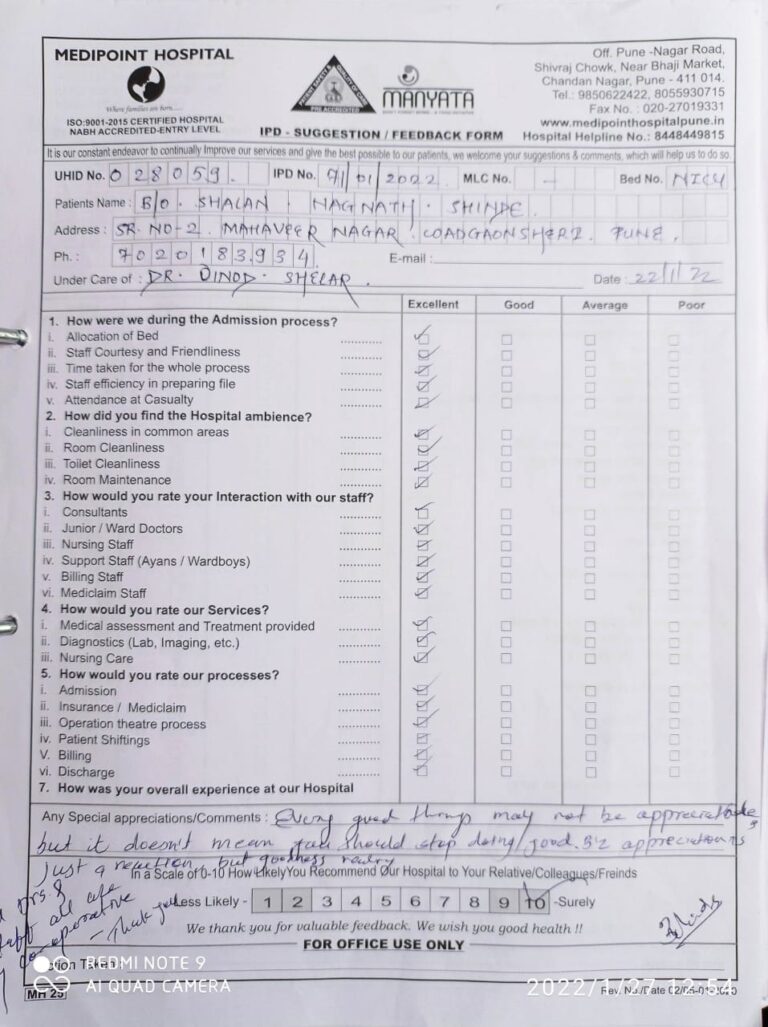 MEDIPOINT HOSPITAL
Where families are born.....
ISO:9001-2015 CERTIFIED HOSPITAL
NABH ACCREDITED-ENTRY LEVEL
PATIENT SAFETY & QUALITY OF CARE
PRE ACCREDITED
MANYATA
IPD - SUGGESTION / FEEDBACK FORM
Off. Pune -Nagar Road,
Shivraj Chowk, Near Bhaji Market,
Chandan Nagar, Pune - 411 014.
Tel.: 9850622422, 8055930715
Fax No. : 020-27019331
www.medipointhospitalpune.in
Hospital Helpline No.: 8448449815
It is our constant endeavor to continually Improve our services and give the best possible to our patients, we welcome your suggestions & comments, which will help us to do so.
UHID No. 028059. IPD No. 91/01/2022 MLC No. - Bed No. NICU
Patients Name : B/O. SHALAN NAGNATH. SHINDE.
Address : SR. NO-2, MAHAVEER NAGAR. LOADGAONSHERI. PUNE.
Ph.: 7020183934 E-mail :
Under Care of : DR. DINOD. SHELAR. Date : 22/1/22
Excellent Good Average Poor
1. How were we during the Admission process?
i. Allocation of Bed ............
ii. Staff Courtesy and Friendliness ............
iii. Time taken for the whole process ............
iv. Staff efficiency in preparing file ............
v. Attendance at Casualty ............
2. How did you find the Hospital ambience?
i. Cleanliness in common areas ............
ii. Room Cleanliness ............
iii. Toilet Cleanliness ............
iv. Room Maintenance ............
3. How would you rate your Interaction with our staff?
i. Consultants ............
ii. Junior / Ward Doctors ............
iii. Nursing Staff ............
iv. Support Staff (Ayans / Wardboys) ............
v. Billing Staff ............
vi. Mediclaim Staff ............
4. How would you rate our Services?
i. Medical assessment and Treatment provided ............
ii. Diagnostics (Lab, Imaging, etc.) ............
iii. Nursing Care ............
5. How would you rate our processes?
i. Admission ............
ii. Insurance / Mediclaim ............
iii. Operation theatre process ............
iv. Patient Shiftings ............
V. Billing ............
vi. Discharge ............
7. How was your overall experience at our Hospital
Any Special appreciations/Comments : Every good things may not be appreciatable,
but it doesn't mean you should stop doing good. appreciation is
Just a reaction but goodness
In a Scale of 0-10 How Likely You Recommend Our Hospital to Your Relative/Colleagues/Freinds
all are
co-operative
- Thank you
Less Likely - 1 2 3 4 5 6 7 8 9 10 -Surely
We thank you for valuable feedback. We wish you good health !!
FOR OFFICE USE ONLY
Action Taken
REDMI NOTE 9
AI QUAD CAMERA
2022/1/27 12:54
MH 25
Rev. No./Date